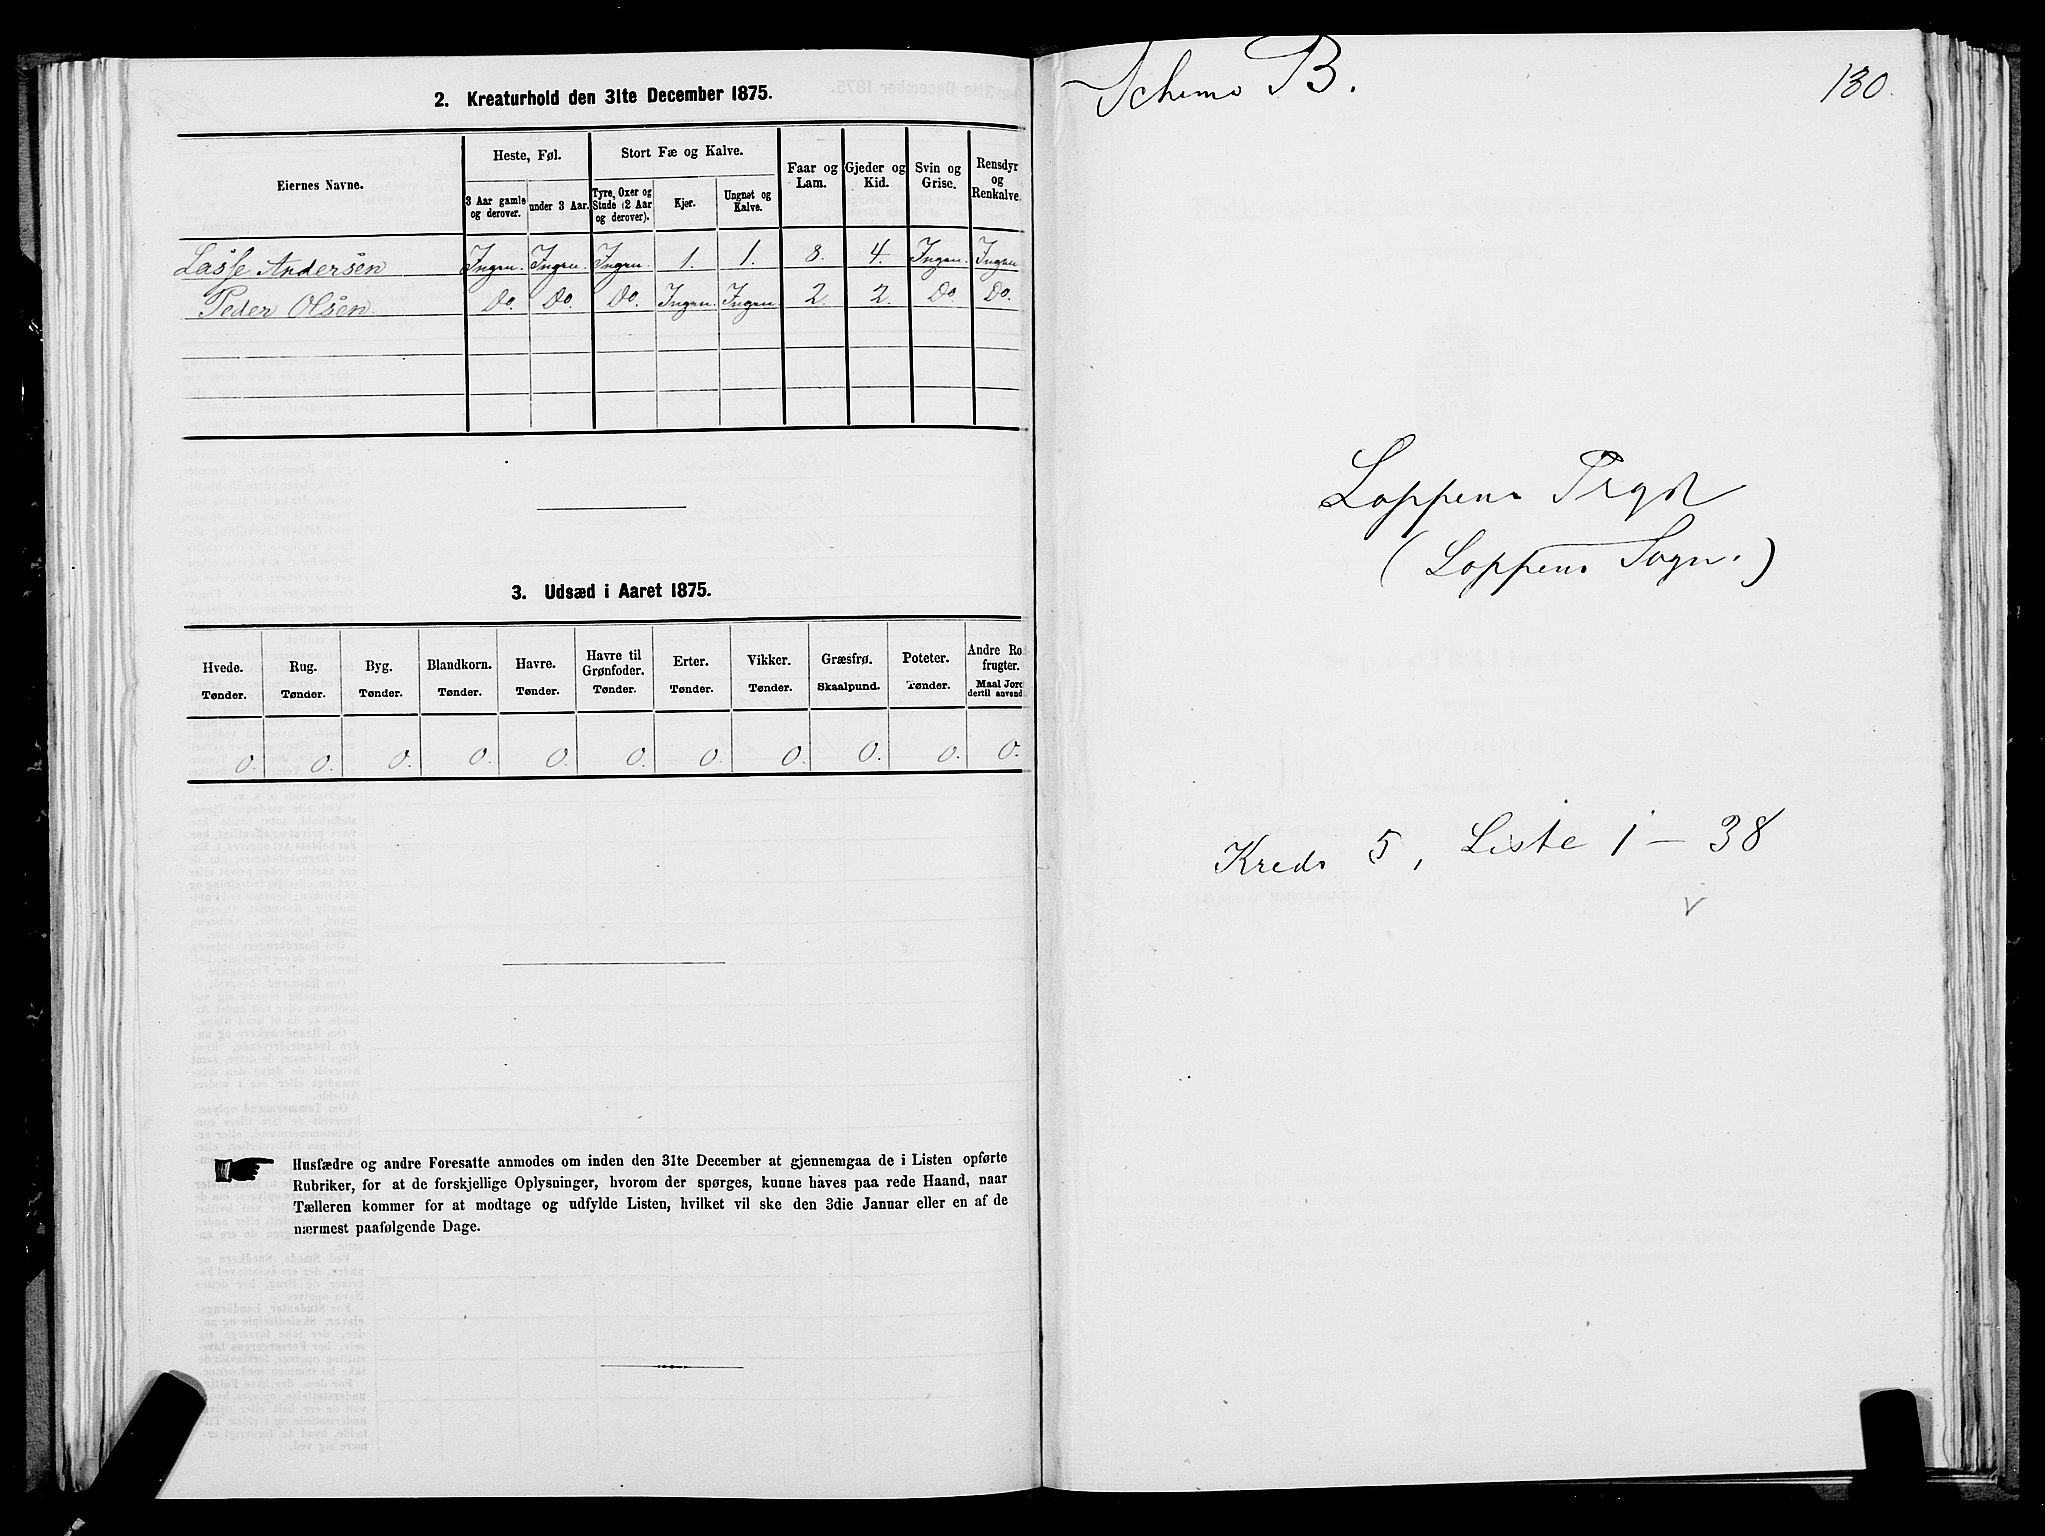 2. Kreaturhold den 31te December 1875.
Eiernes Navne.
Heste, Føl.
Stort Fæ og Kalve.
Faar og Lam.
Gjeder og Kid.
Svin og Grise.
Rensdyr og Renkalve.
3 Aar gamle og derover.
under 3 Aar.
Tyre, Oxer og Stude (2 Aar og derover).
Kjør.
Ungnøt og Kalve.
Lasse Andersen Ingen. Ingen. Ingen. 1. 1. 8. 4. Ingen. Ingen
Peder Olsen Do. Do. Do. Ingen. Ingen 2. 2. Do. Do.
3. Udsæd i Aaret 1875.
Hvede. Rug. Byg. Blandkorn. Havre. Havre til Grønfoder. Erter. Vikker. Græsfrø. Poteter. Andre Rodfrugter.
Tønder. Tønder. Tønder. Tønder. Tønder. Tønder. Tønder. Tønder. Skaalpund. Tønder. Maal Jord dertil anvendt
0. 0. 0. 0. 0. 0. 0. 0. 0. 0. 0.
Husfædre og andre Foresatte anmodes om inden den 31te December at gjennemgaa de i Listen opførte
Rubriker, for at de forskjellige Oplysninger, hvorom der spørges, kunne haves paa rede Haand, naar
Tælleren kommer for at modtage og udfylde Listen, hvilket vil ske den 3die Januar eller en af de
nærmest paafølgende Dage.
Schema B.
130.
Loppens Prgd
(Loppens Sogn.)
Kreds 5, Liste 1 - 38